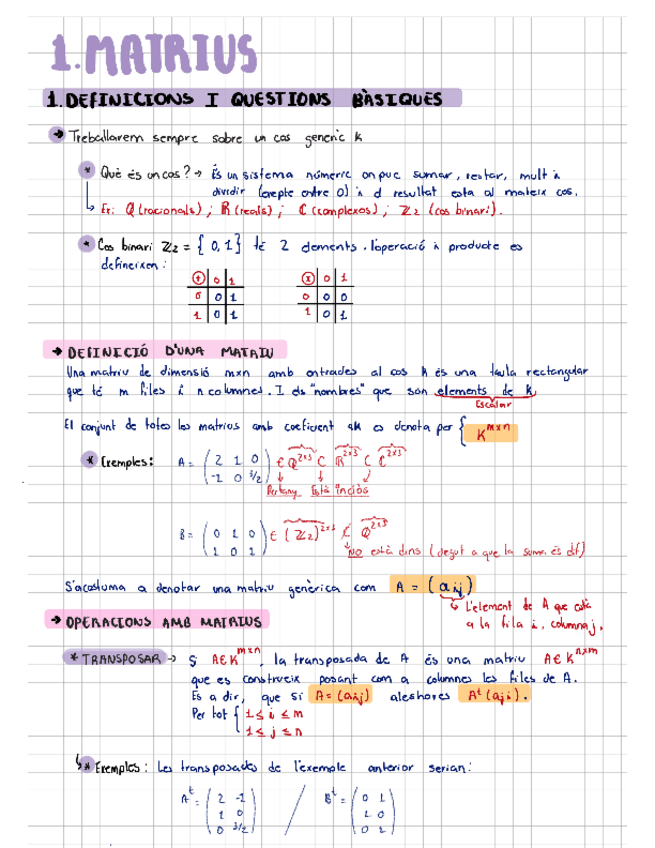 1. MATRIUS
1. DEFINICIONS I QUESTIONS BÀSIQUES
→ Treballarem sempre sobre un cos genèric k
* Què és un cos? → És un sistema númeric on puc sumar, restar, mult i
dividir (excepte entre 0) i el resultat esta al mateix cos.
↳ Ex: Q (racionals) ; R (reals) ; C (complexos) ; Z₂ (cos binari).
* Cos binari Z₂ = { 0, 1 } té 2 elements. l'operació i producte es
defineixen :
+ 0 1
0 0 1
1 0 1
x 0 1
0 0 0
1 0 1
→ DEFINICIÓ D'UNA MATRIU
Una matriu de dimensió mxn amb entrades al cos K és una taula rectangular
que té m files i n columnes. I els "nombres" que son elements de k
Escalar
El conjunt de totes les matrius amb coeficient al K es denota per { K^mxn
* Exemples: A = ( 2 1 0 / -1 0 3/2 ) ∈ Q^2x3 ⊂ R^2x3 ⊂ C^2x3
Pertany Està inclòs
B = ( 0 1 0 / 1 0 1 ) ∈ (Z₂)^2x3 ⊄ Q^2x3
NO està dins (degut a que la suma és dif)
S'acostuma a denotar una matriu genèrica com A = (aij)
↳ L'element de A que està
a la fila i, columna j.
→ OPERACIONS AMB MATRIUS
* TRANSPOSAR → Si A∈K^mxn, la transposada de A és una matriu A∈K^nxm
que es construeix posant com a columnes les files de A.
És a dir, que si A = (aij) aleshores A^t (aji).
Per tot { 1 ≤ i ≤ m
1 ≤ j ≤ n
↳* Exemples : Les transposades de l'exemple anterior serian:
A^t = ( 2 -1 / 1 0 / 0 3/2 ) / B^t = ( 0 1 / 1 0 / 0 1 )